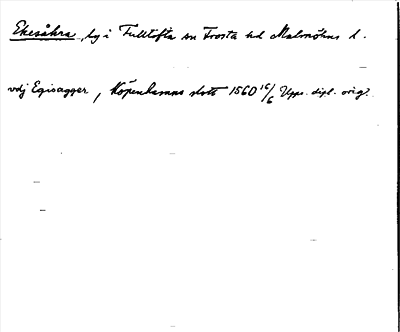 Ekesåkra, by i Fulltofta sn Frosta hd Malmöhus l.
vdj Egisagger, Köpenhamns slott 1560 16/6 Upps. dipl. orig.